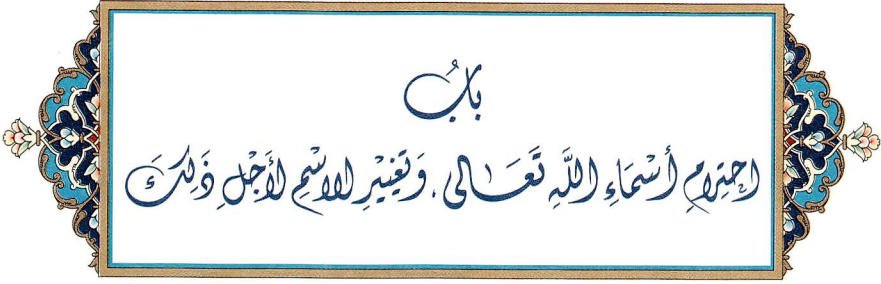 بَابُ
احْتِرَامِ أَسْمَاءِ اللَّهِ تَعَالَى، وَتَغْيِيْرِ الاسْمِ لأَجْلِ ذَلِكَ